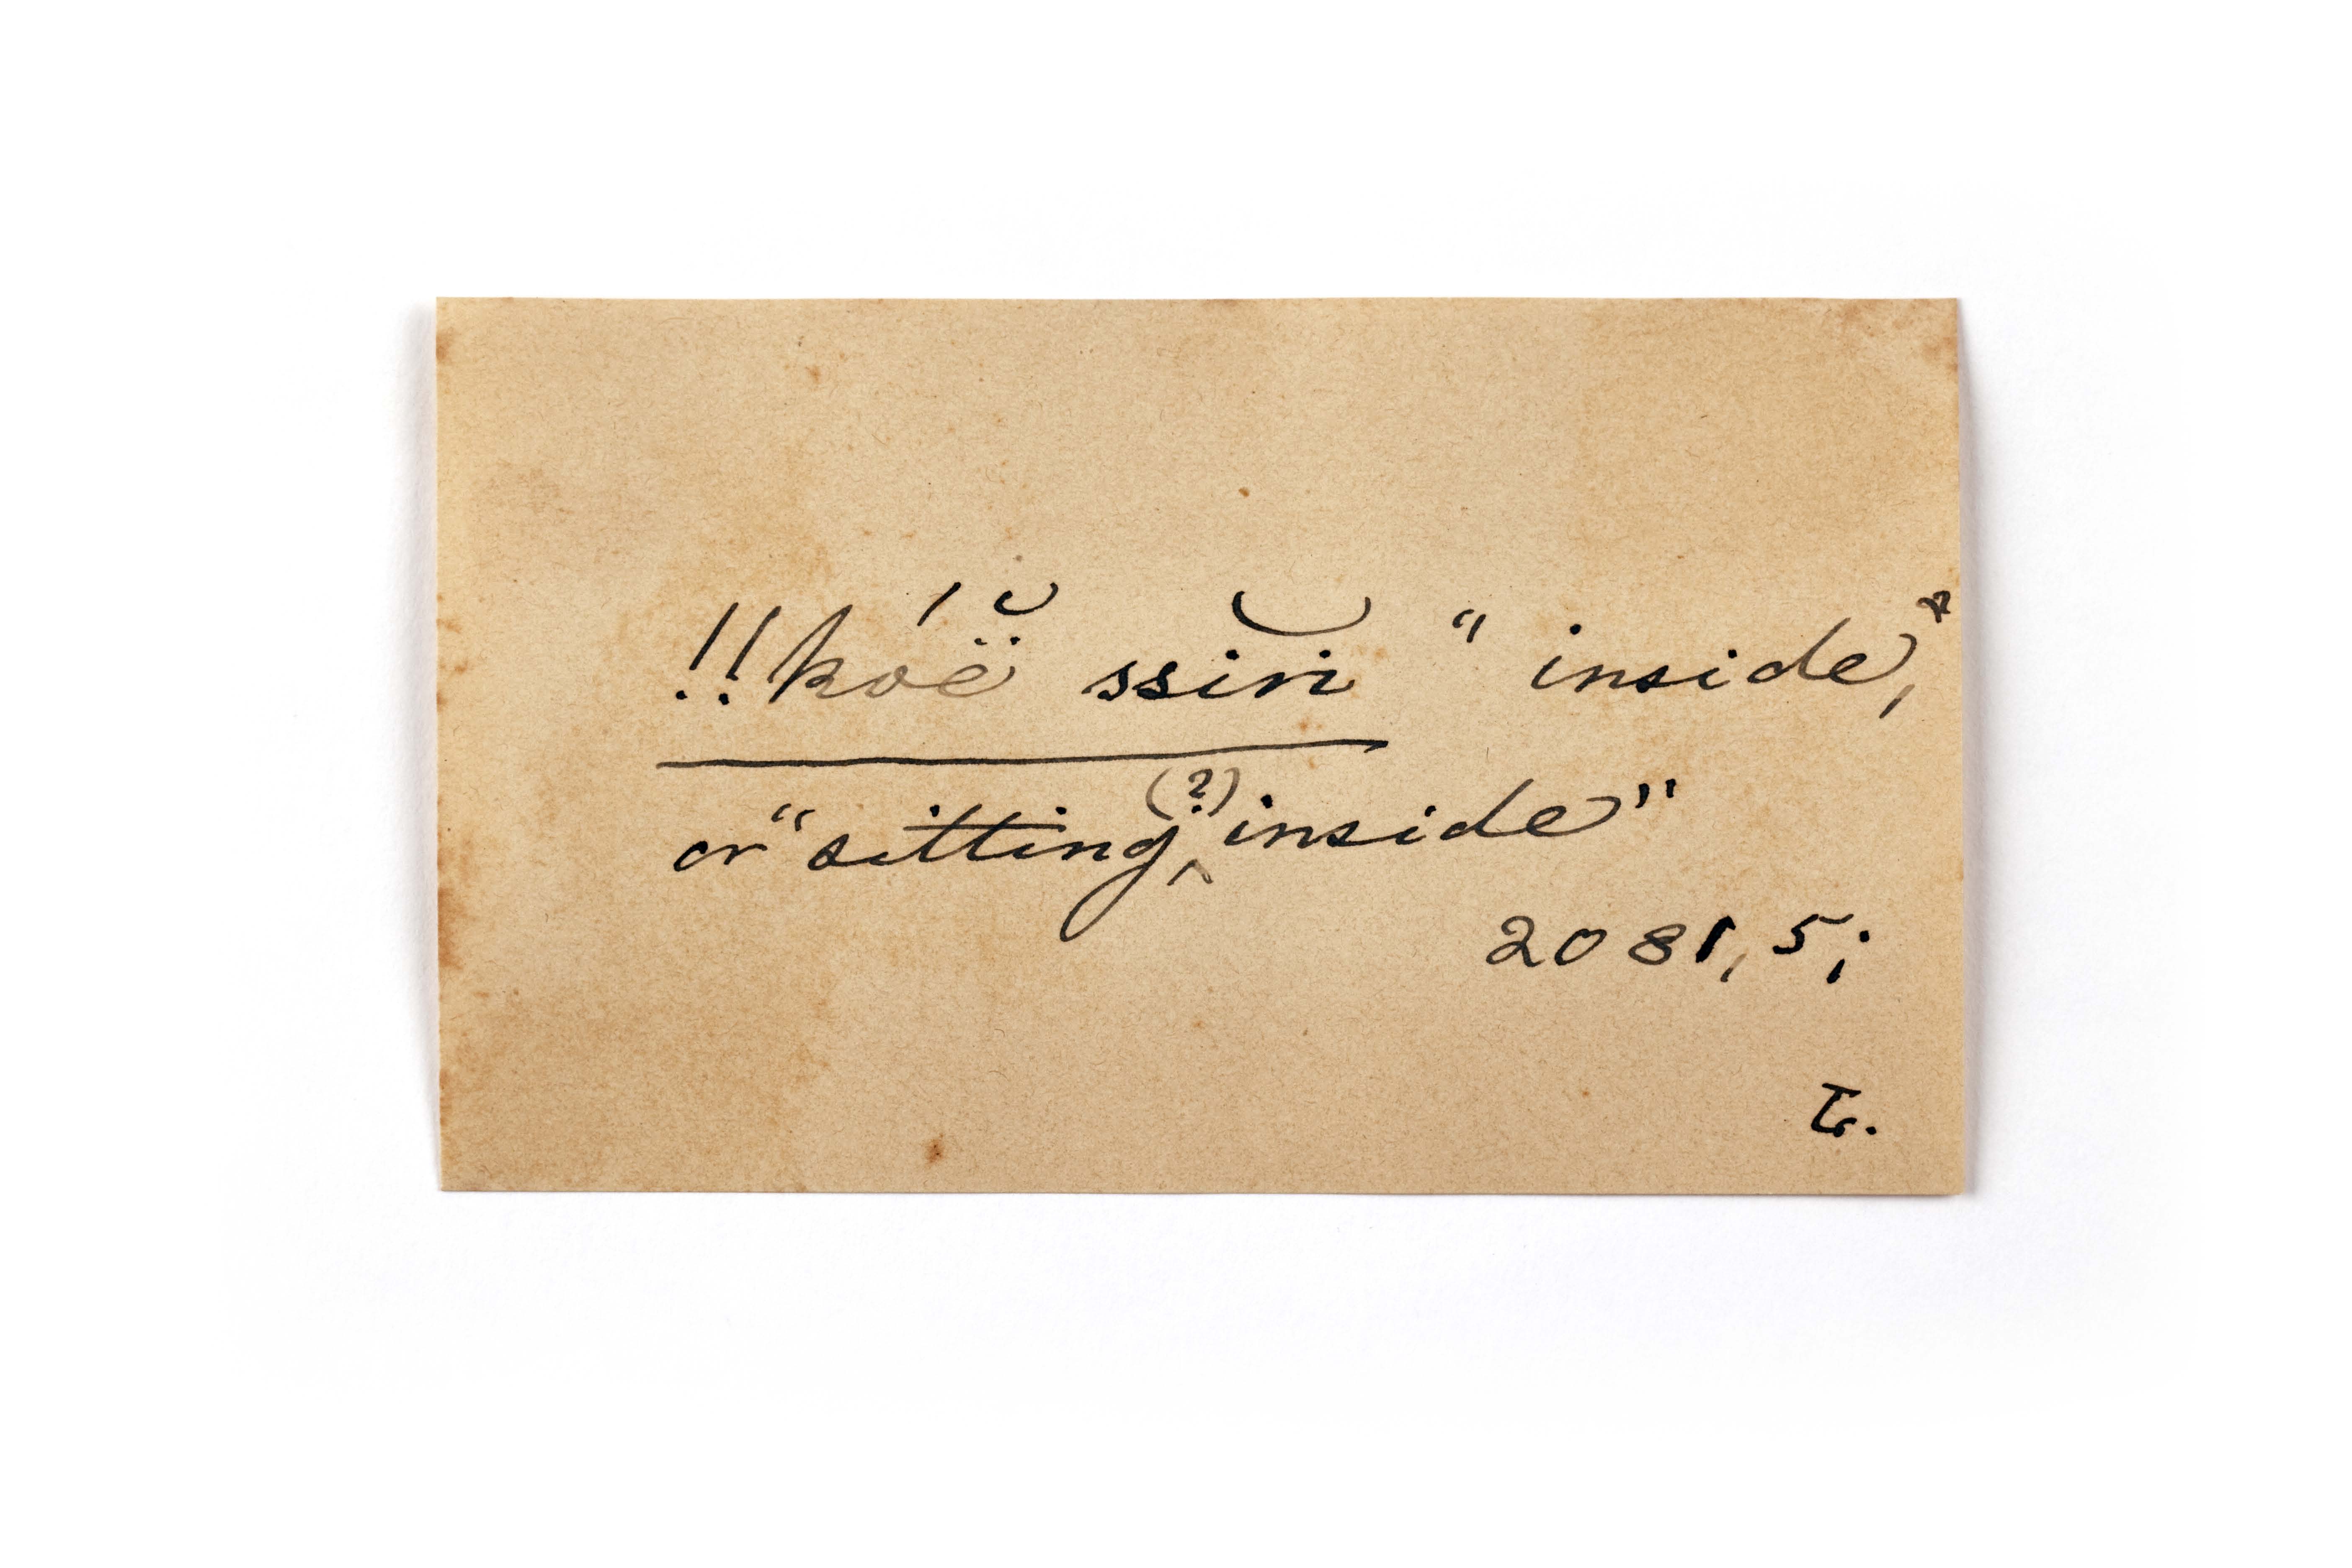 !!kóë̆ ssĭn "inside,"
or "sitting (?) inside"
2081, 5;